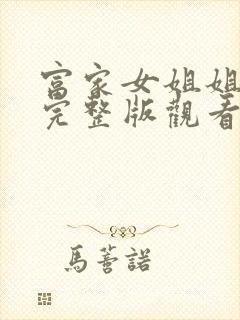 富家女姐姐
完整版觀看
馬薈諾